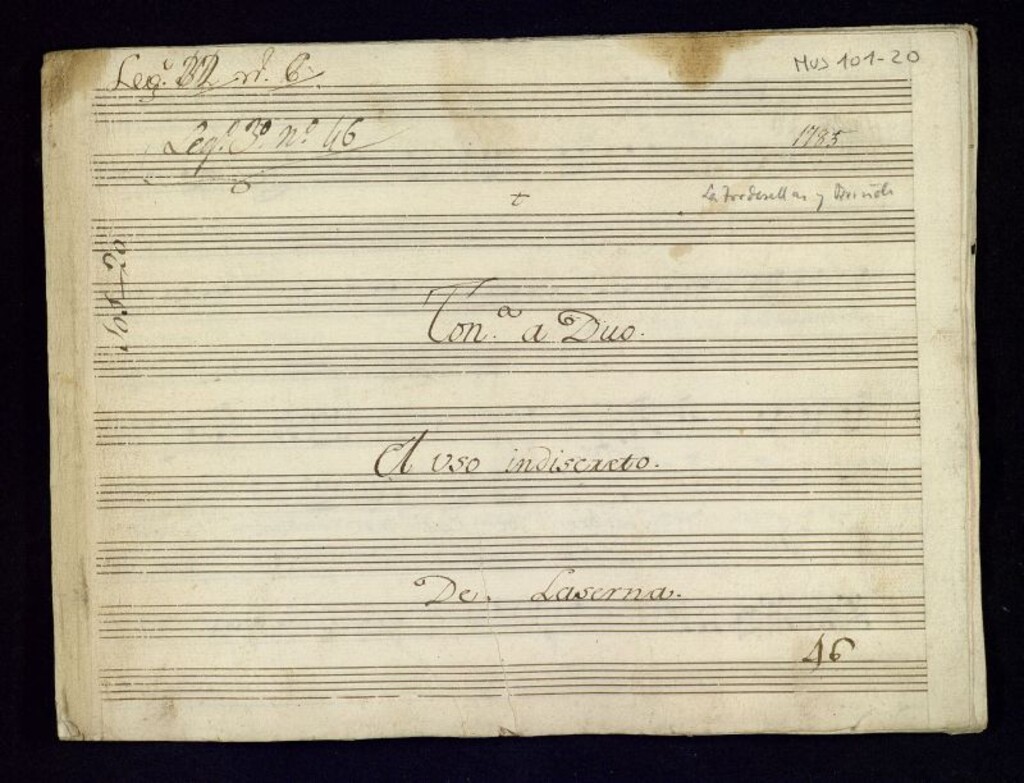 Leg.º 22 n.º 6.
MUS 101-20
Leg.º 3.º n.º 46
1785
t
La Tordesillas y
101-20
Ton.ª a Duo.
El uso indiscreto.
De. Laserna.
46